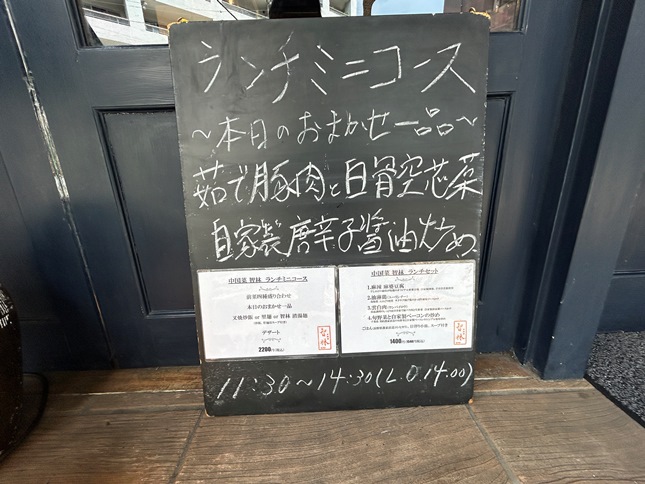 ランチミニコース
~本日のおまかせ一品~
茹で豚肉と白骨空芯菜
自家製唐辛子醤油炒め
中国菜 智林 ランチミニコース
前菜四種盛り合わせ
本日のおまかせ一品
叉焼炒飯 or 葱麺 or 智林 酒湯麺
デザート
2200
中国菜 智林 ランチセット
1.麻辣 麻婆豆腐
3.雲白肉
4.旬野菜と自家製ベーコンの炒め
1400
11:30~14:30(L.O.14:00)